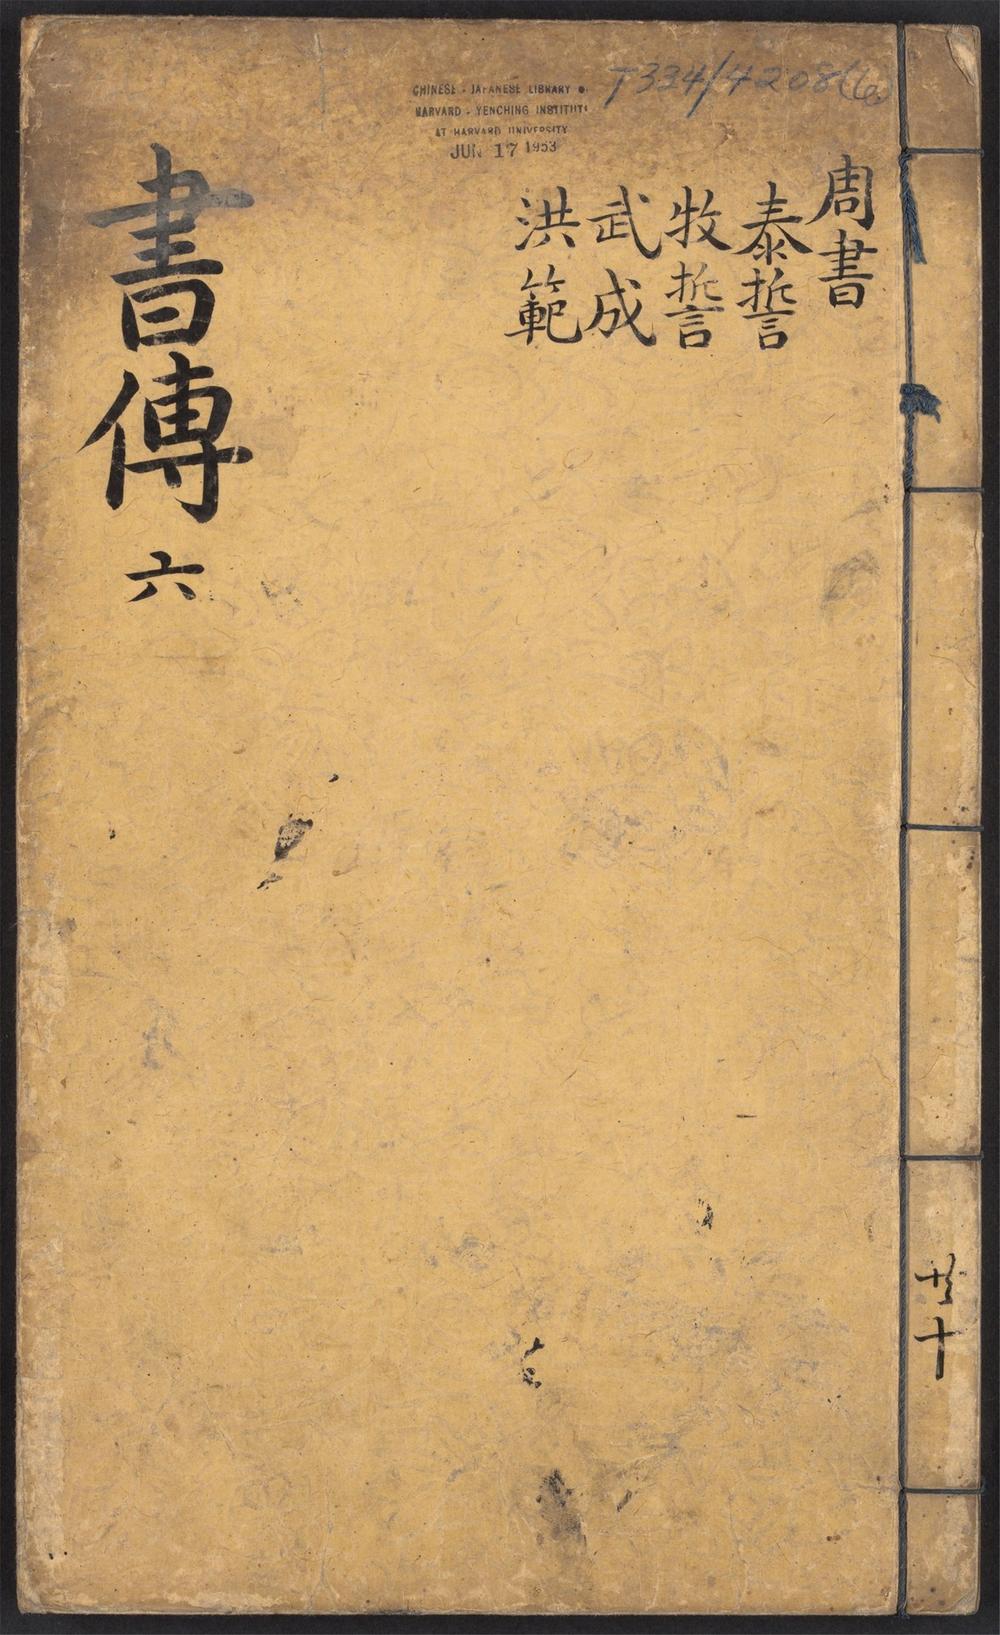 T334/4208(6)
CHINESE - JAPANESE LIBRARY
HARVARD - YENCHING INSTITUTE
AT HARVARD UNIVERSITY
JUN 17 1953
周書
泰誓
牧誓
武成
洪範
書傳 六
共十